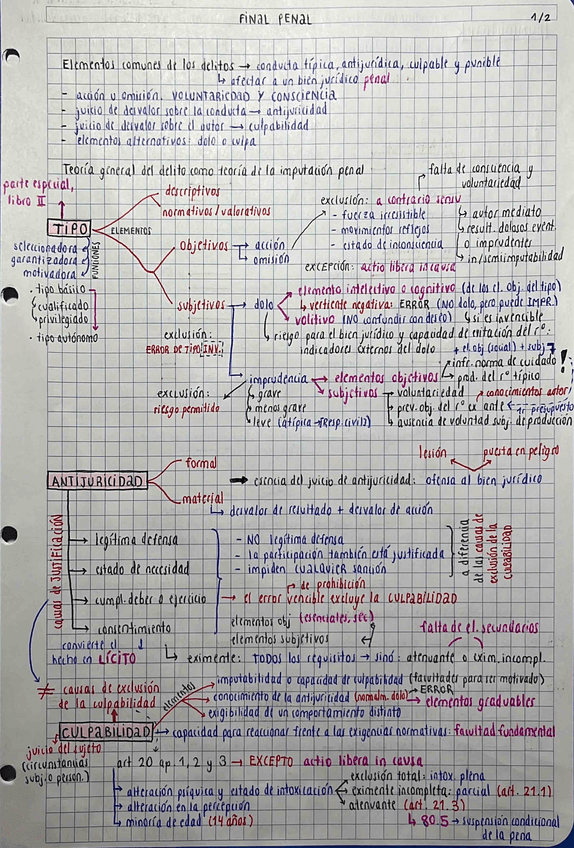 FINAL PENAL
1/2
Elementos comunes de los delitos → conducta típica, antijurídica, culpable y punible
↳ afectar a un bien jurídico penal
- acción u omisión. VOLUNTARIEDAD Y CONSCIENCIA
- juicio de desvalor sobre la conducta → antijuricidad
- juicio de desvalor sobre el autor → culpabilidad
- elementos alternativos: dolo o culpa
Teoría general del delito como teoría de la imputación penal
parte especial,
libro II
TIPO
ELEMENTOS
FUNCIONES
seleccionadora
garantizadora
motivadora
· tipo básico
cualificado
privilegiado
· tipo autónomo
descriptivos
normativos/valorativos
objetivos → acción
omisión
exclusión: a contrario sensu
falta de consciencia y
voluntariedad
- fuerza irresistible
- movimientos reflejos
- estado de inconsciencia
autor mediato
result. dolosos event.
o imprudentes
in/semiimputabilidad
excepción: actio libera in causa
subjetivos → dolo
elemento intelectivo o cognitivo (de los el. obj. del tipo)
↳ vertiente negativa: ERROR (NO dolo, pero puede IMPR.)
volitivo (NO confundir con deseo)
↳ si es invencible
↳ riesgo para el bien jurídico y capacidad de evitación del rº:
indicadores externos del dolo
exclusión:
ERROR DE TIPO INV.
+ el. obj (igual) + subj
imprudencia → elementos objetivos
infr. norma de cuidado
prod. del rº típico
!
subjetivos
voluntariedad
conocimientos autor
prev. obj. del rº ex ante
presupuesto
ausencia de voluntad subj. de producción
exclusión:
riesgo permitido
grave
menos grave
leve (atípica → Resp. civil)
ANTIJURICIDAD
formal
material
↳ desvalor de resultado + desvalor de acción
➡ esencia del juicio de antijuricidad: ofensa al bien jurídico
lesión
puesta en peligro
causas de JUSTIFICACIÓN
→ legítima defensa
→ estado de necesidad
→ cumpl. deber o ejercicio
→ consentimiento
- NO legítima defensa
- la participación también está justificada
- impiden CUALQUIER sanción
a diferencia
de las causas de
exclusión de la
CULPABILIDAD
de prohibición
→ el error vencible excluye la CULPABILIDAD
elementos obj (esenciales, sec)
elementos subjetivos
falta de el. secundarios
convierte el
hecho en LÍCITO
↳ eximente: TODOS los requisitos → sino: atenuante o exim. incompl.
≠ causas de exclusión
de la culpabilidad
elementos
imputabilidad o capacidad de culpabilidad (facultades para ser motivado)
conocimiento de la antijuricidad (normalm. dolo) → ERROR
exigibilidad de un comportamiento distinto
elementos graduables
CULPABILIDAD → capacidad para reaccionar frente a las exigencias normativas: facultad fundamental
juicio del sujeto
(circunstancias
subj. o person.)
art 20 ap. 1, 2 y 3 → EXCEPTO actio libera in causa
→ alteración psíquica y estado de intoxicación
exclusión total: intox. plena
eximente incompleta: parcial (art. 21.1)
atenuante (art. 21.3)
→ alteración en la percepción
→ minoría de edad (14 años)
↳ 80.5 → suspensión condicional
de la pena